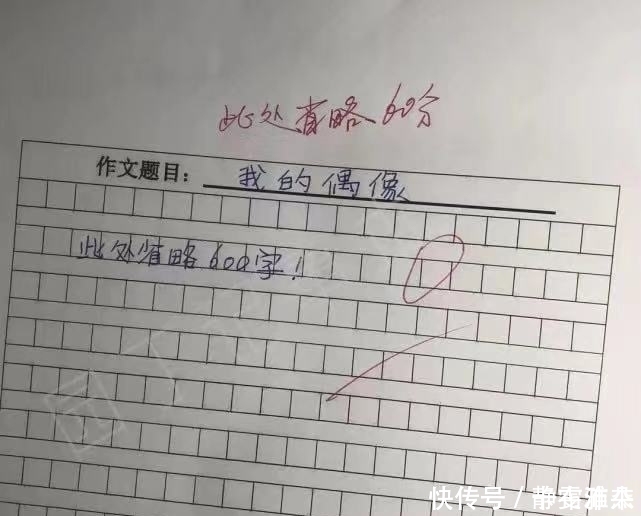 此处省略60分
作文题目：我的偶像
此处省略600字！
0
快传号／